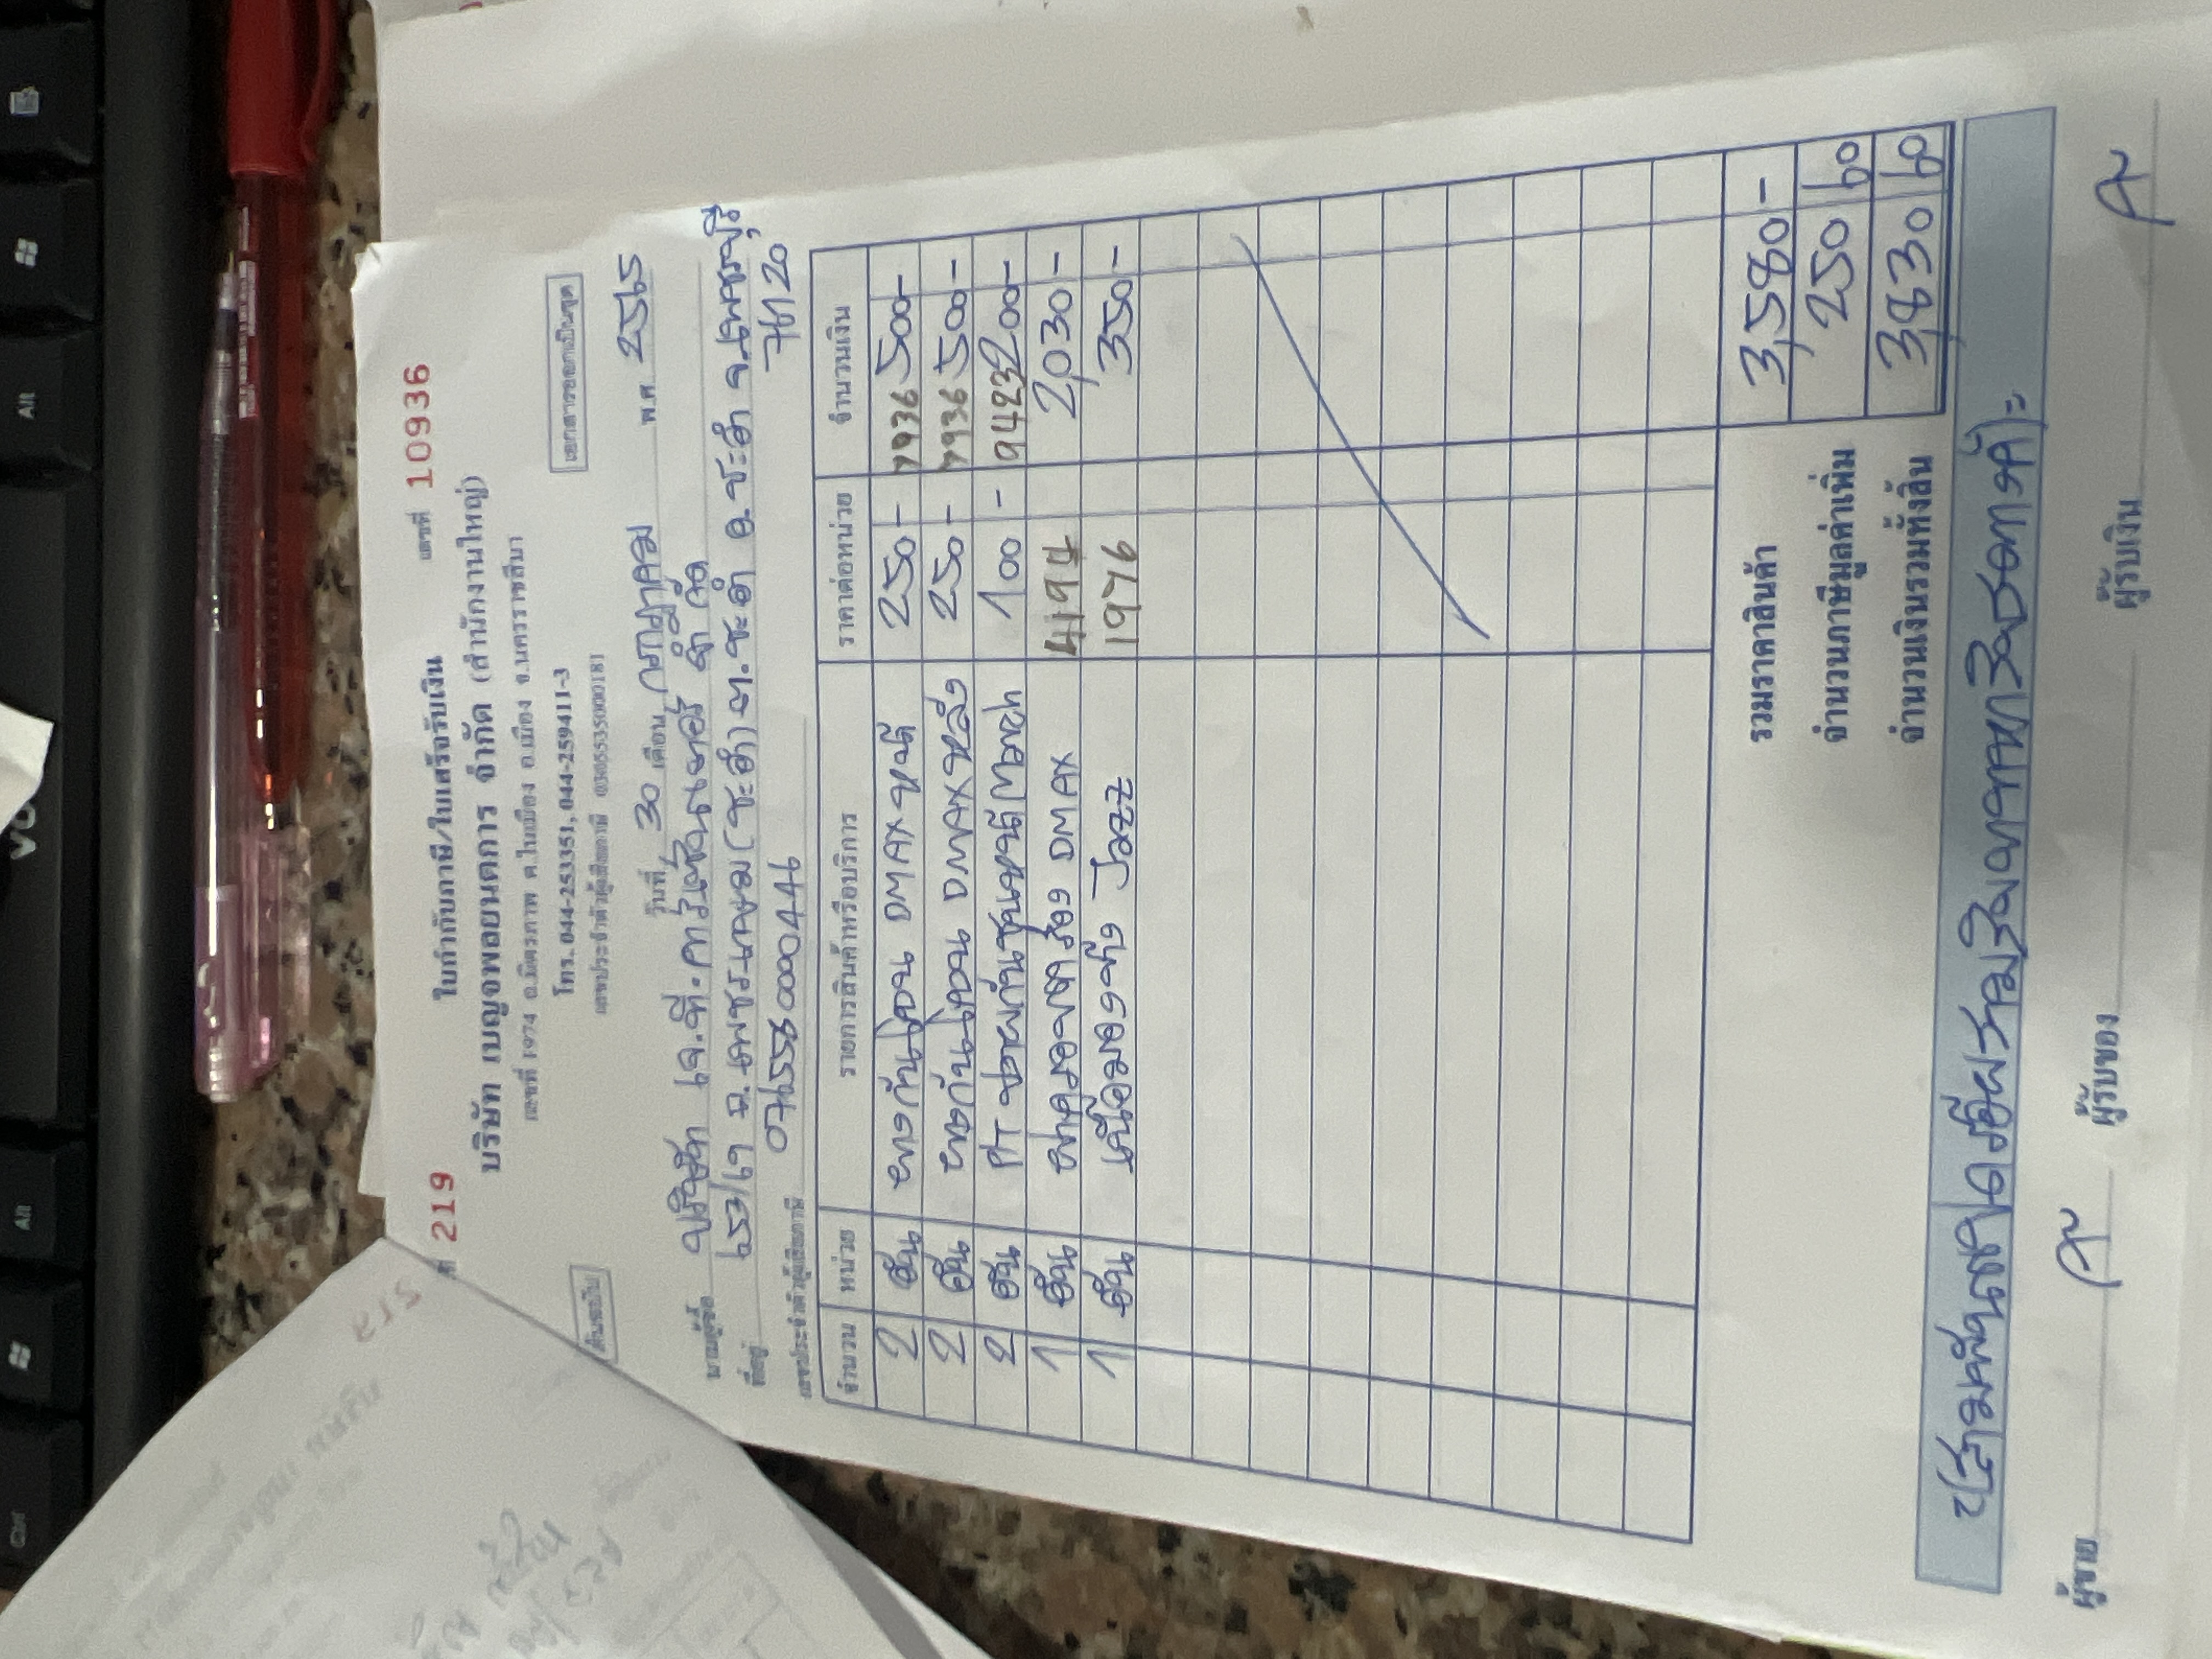 219
เลขที่ 10936
ใบกำกับภาษี/ใบเสร็จรับเงิน
บริษัท เบญจพลยนตการ จำกัด (สำนักงานใหญ่)
เลขที่ 1974 ถ.มิตรภาพ ต.ในเมือง อ.เมือง จ.นครราชสีมา
โทร. 044-253351, 044-259411-3
ต้นฉบับ
เอกสารออกเป็นชุด
เลขประจำตัวผู้เสียภาษี 0305535000181
วันที่ 30 เดือน กรกฎาคม พ.ศ. 2565
นามผู้ซื้อ บริษัท เจ.ที. คาร์เซ็นเตอร์ จำกัด
ที่อยู่ 653/67 ถ.เพชรเกษม(ชะอำ) ต.ชะอำ อ.ชะอำ จ.เพชรบุรี
76120
เลขประจำตัวผู้เสียภาษี 0765580000446
จำนวน หน่วย รายการสินค้าหรือบริการ ราคาต่อหน่วย จำนวนเงิน
2 อัน DMAX หน้า 250 - 7936 500 -
2 อัน DMAX หลัง 250 - 7936 500 -
2 อัน 100 - 94232 200 -
1 อัน DMAX 4194 2,030 -
1 อัน Jazz 1976 350 -
รวมราคาสินค้า 3,580 -
จำนวนภาษีมูลค่าเพิ่ม 250 60
จำนวนเงินรวมทั้งสิ้น 3,830 60
(สามพันแปดร้อยสามสิบบาทหกสิบสตางค์)
ผู้ขาย ผู้รับของ ผู้รับเงิน